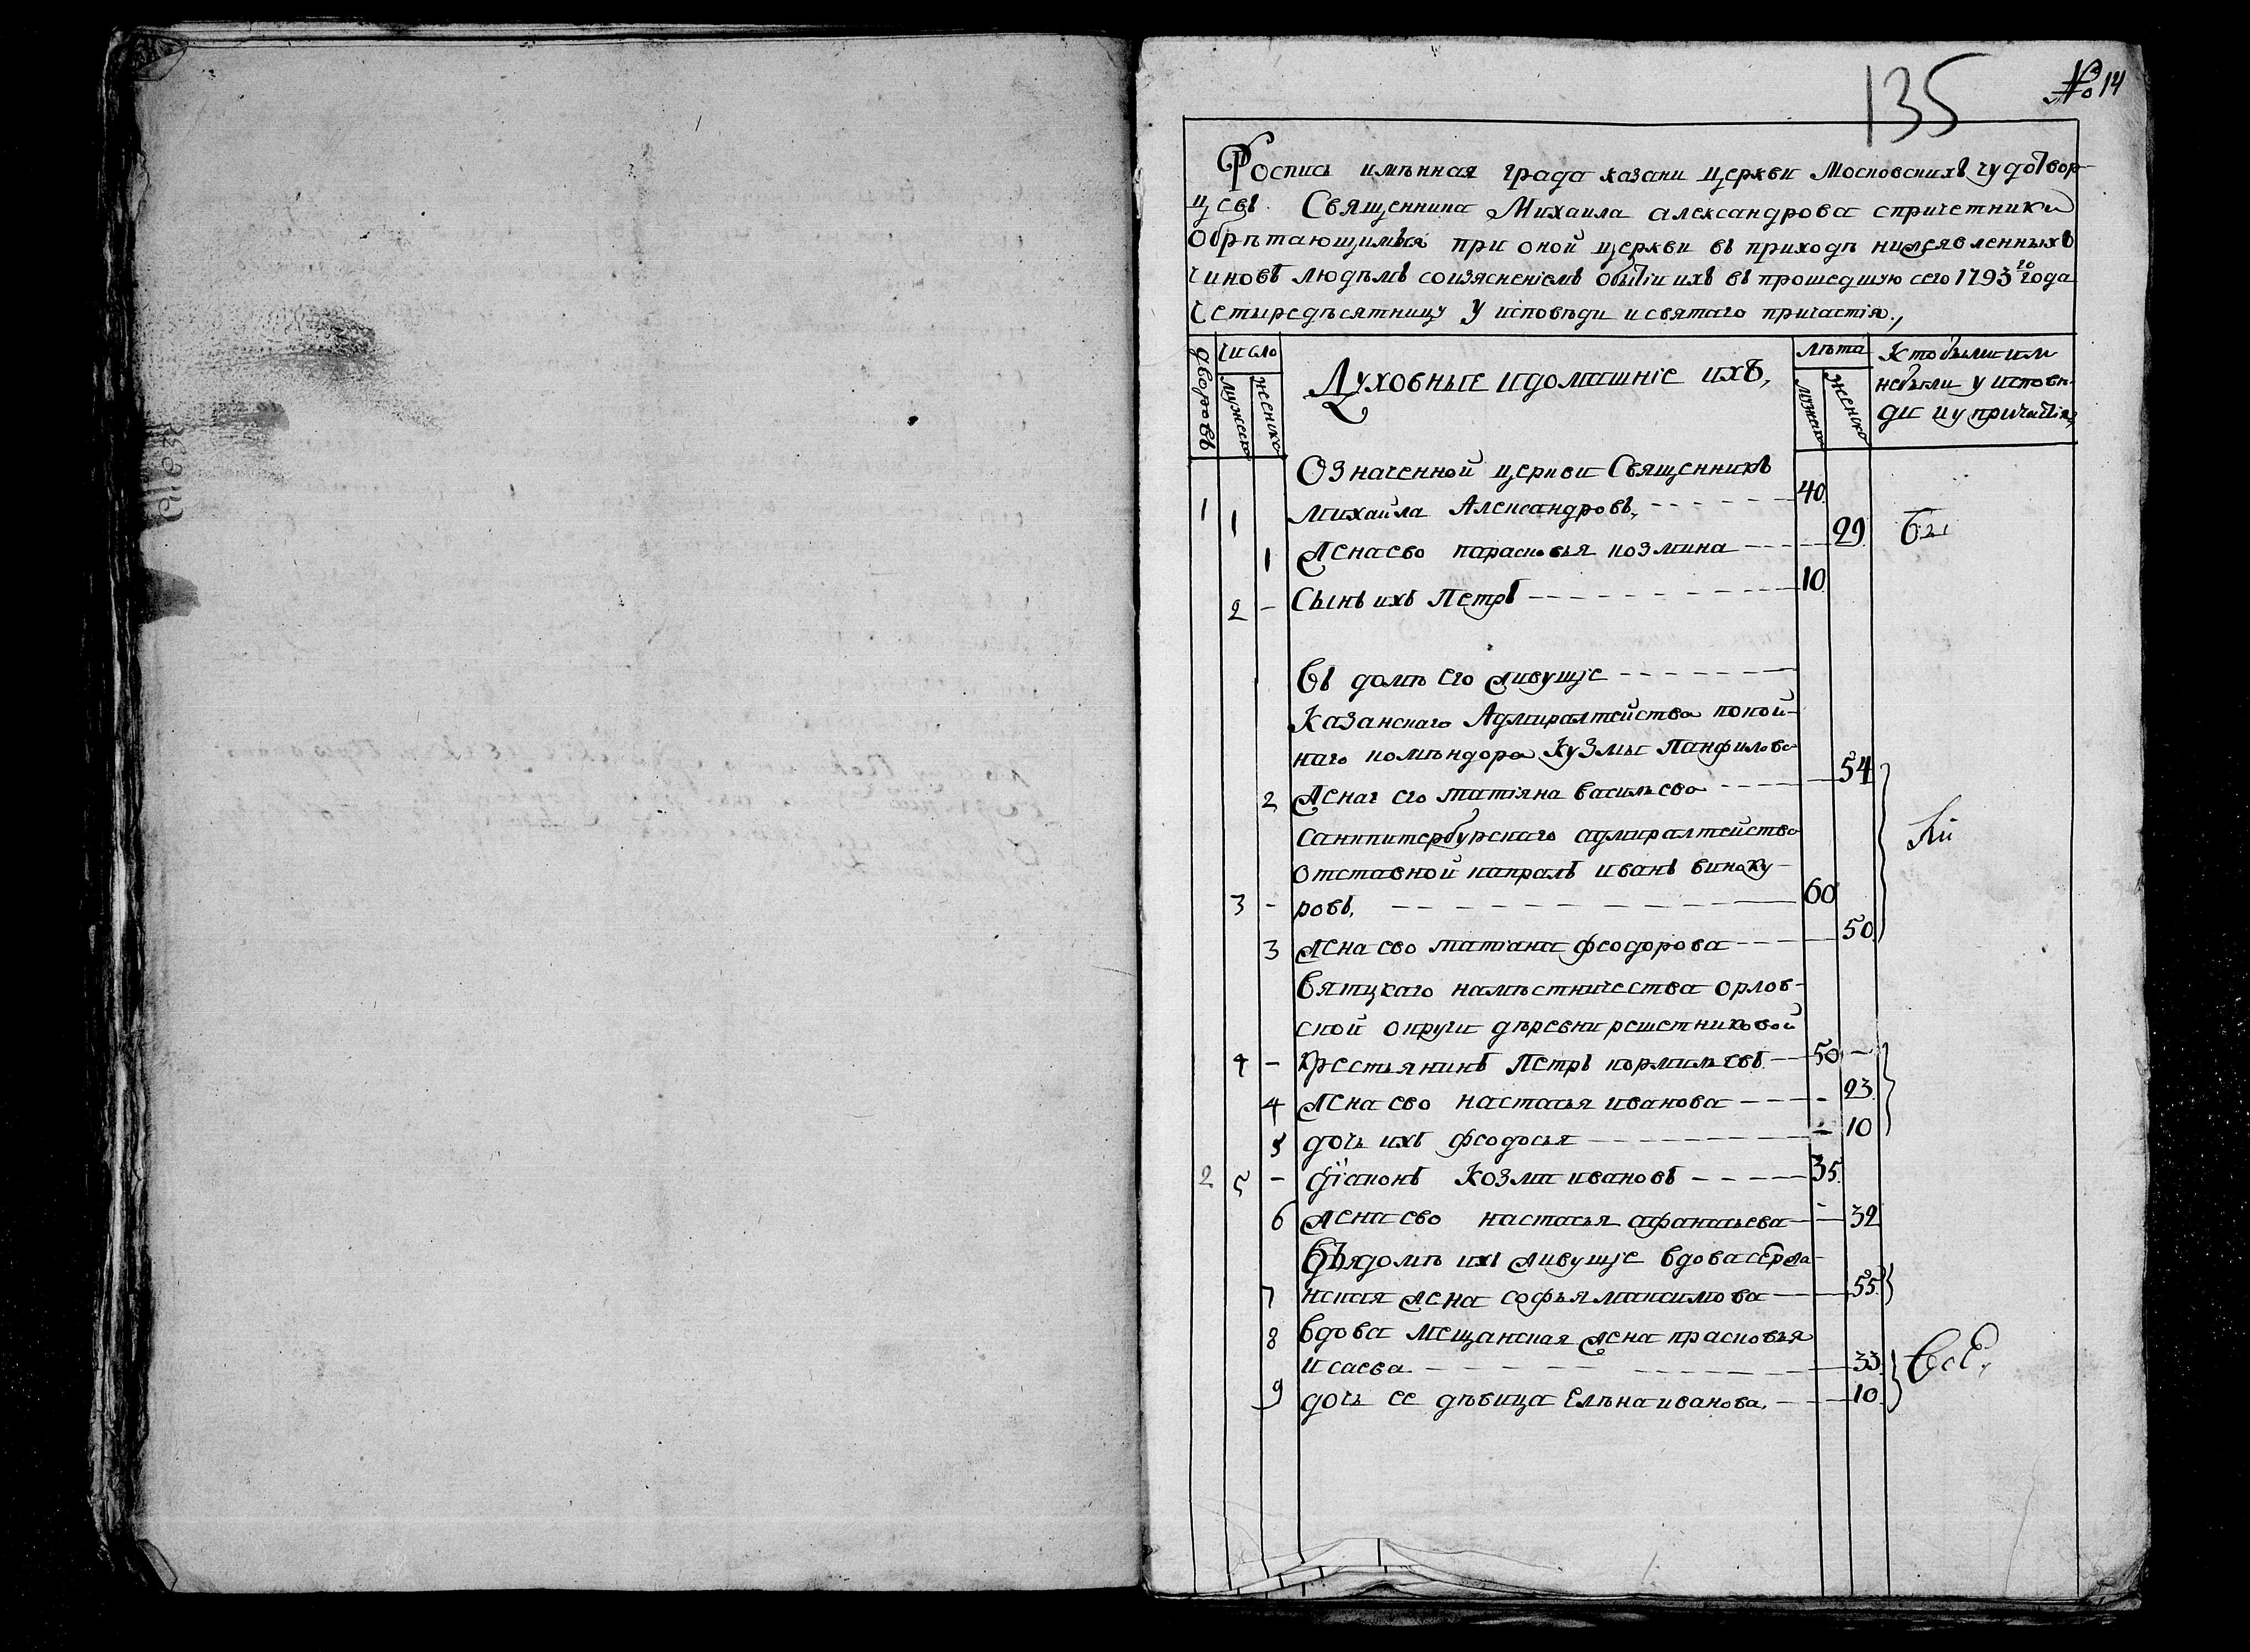 135
№ 14
Роспись имѣнная града казани церкви Московскихъ чудотвор-
цовъ Священника Михаила александрова спричетники
Обрѣтающимися при оной церкви въ приходѣ нижеявленныхъ
чиновъ людѣмъ соизясненіемъ обытіи ихъ въ прошедшую сего 1793 го года
Четыредѣсятницу у исповѣди и святаго причастія.,
дворовъ
число
мужеска
женска
Духовные идомашніе ихъ,
лѣта
мужеска
женска
Кто были или
небыли у исповѣ-
ди и у причастія,
Означенной церкви Священникъ
1 1 михаила Александровъ, 40
1 Жена ево парасковья козмина 29 Бы
2 - Сынъ ихъ Петръ 10
Въ домѣ Его живущіе
Казанскаго Адмиралтейства покой-
наго комѣндора Кузмы Панфилова
2 Жена Его татіяна васильева 54
Санкпитербурскаго адмиралтейства ли
отставной капралъ иванъ виноку-
3 - ровъ, 60
3 жена ево татіана феодорова 50
Вятцкаго намѣстничества орлов-
ской округи дѣревни решетниковой
4 - крестьянинъ Петръ кормильевъ 50 -
4 Жена ево настасья иванова - 23
5 дочь ихъ феодосья - 10
2 5 - діаконъ Козма ивановъ 35
6 жена ево настасья афанасьева - 32
Въ домѣ ихъ живущіе вдова сержа-
7 нская жена софья максимова 55
8 вдова мещанская жена прасковья
исаева 33 Всѣ,
9 дочь ее дѣвица Елѣна иванова. 10